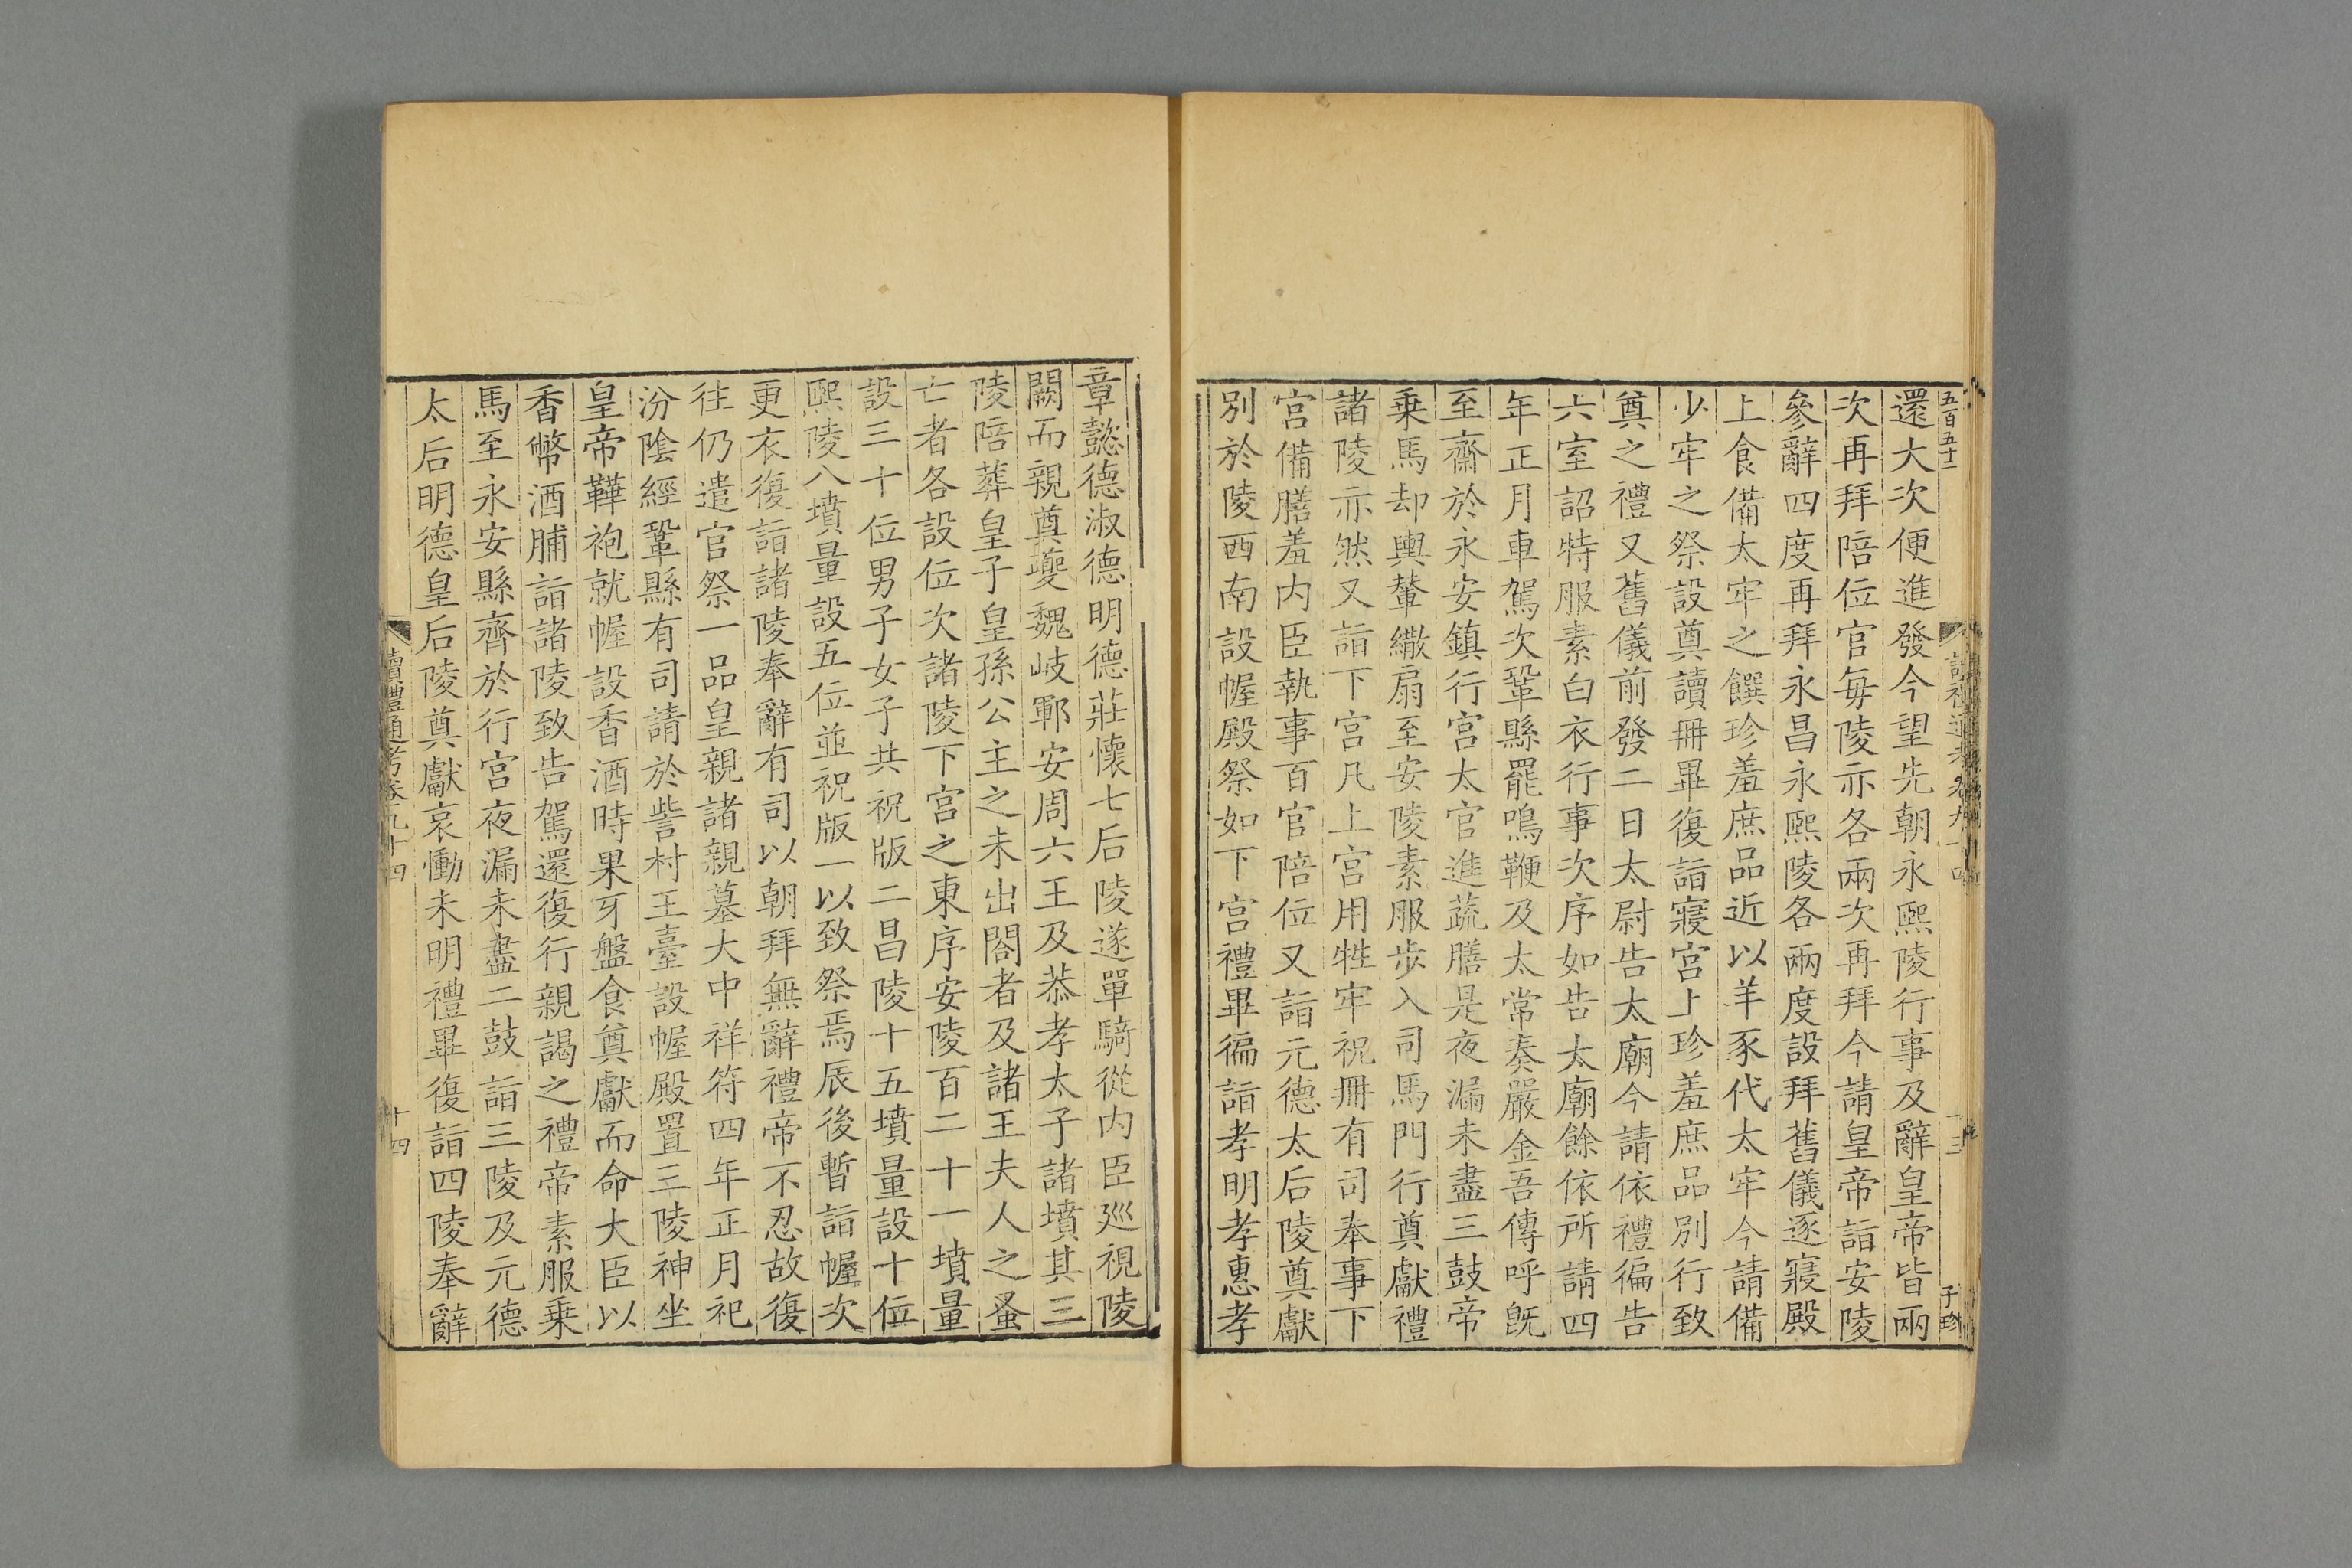 五百五十二
讀禮通考卷九十四
十三
子珍
還大次便進發今望先朝永熙陵行事及辭皇帝皆兩
次再拜陪位官每陵亦各兩次再拜今請皇帝詣安陵
參辭四度再拜永昌永熙陵各兩度設拜舊儀逐寢殿
上食備太牢之饌珍羞庶品近以羊豕代太牢今請備
少牢之祭設奠讀冊畢復詣寢宮上珍羞庶品別行致
奠之禮又舊儀前發二日太尉告太廟今請依禮徧告
六室詔特服素白衣行事次序如告太廟餘依所請四
年正月車駕次鞏縣罷鳴鞭及太常奏嚴金吾傳呼既
至齋於永安鎮行宮太官進蔬膳是夜漏未盡三鼓帝
乗馬却輿輦繖扇至安陵素服步入司馬門行奠獻禮
諸陵亦然又詣下宮凡上宮用牲牢祝冊有司奉事下
宮備膳羞内臣執事百官陪位又詣元德太后陵奠獻
別於陵西南設幄殿祭如下宮禮畢徧詣孝明孝惠孝
章懿德淑德明德莊懷七后陵遂單騎從内臣巡視陵
闕而親奠夔魏岐鄆安周六王及恭孝太子諸墳其三
陵陪葬皇子皇孫公主之未出閤者及諸王夫人之蚤
亡者各設位次諸陵下宮之東序安陵百二十一墳量
設三十位男子女子共祝版二昌陵十五墳量設十位
熙陵八墳量設五位並祝版一以致祭焉辰後暫詣幄次
更衣復詣諸陵奉辭有司以朝拜無辭禮帝不忍故復
往仍遣官祭一品皇親諸親墓大中祥符四年正月祀
汾陰經鞏縣有司請於訾村王臺設幄殿置三陵神坐
皇帝鞾袍就幄設香酒時果牙盤食奠獻而命大臣以
香幣酒脯詣諸陵致告駕還復行親謁之禮帝素服乗
馬至永安縣齊於行宮夜漏未盡二鼓詣三陵及元德
太后明德皇后陵奠獻哀慟未明禮畢復詣四陵奉辭
讀禮通考卷九十四
十四